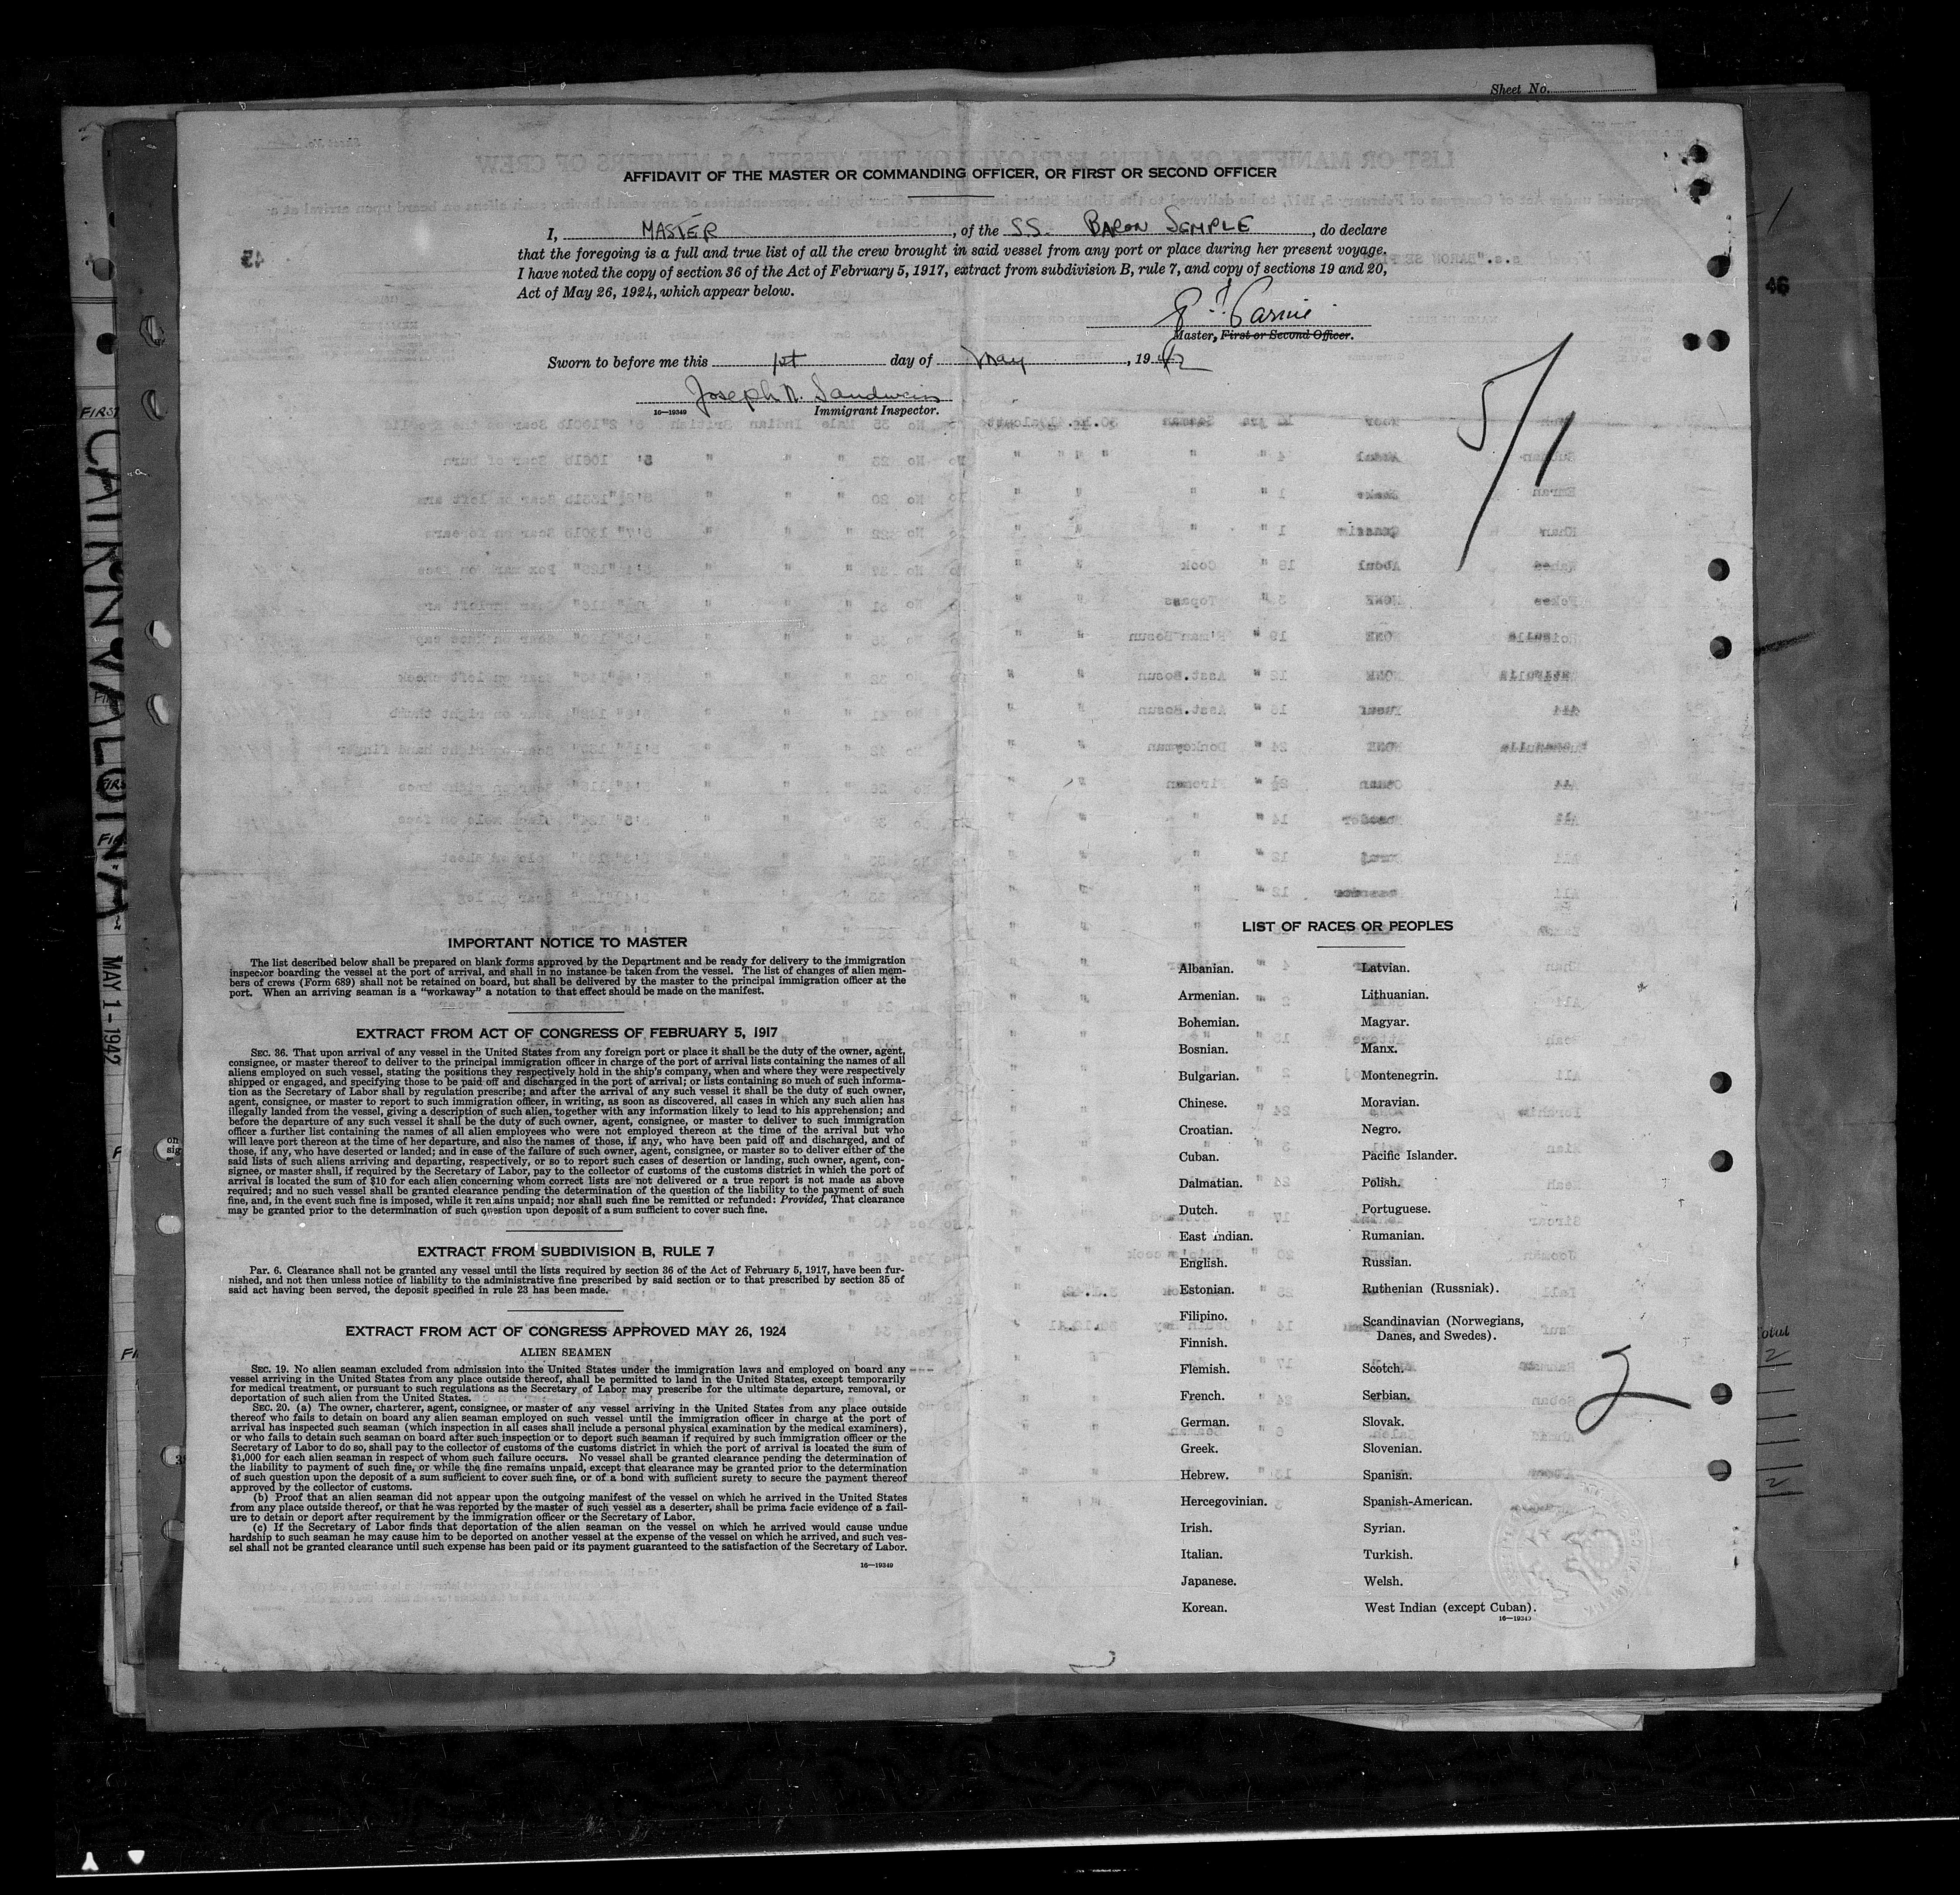 Sheet No.
AFFIDAVIT OF THE MASTER OR COMMANDING OFFICER, OR FIRST OR SECOND OFFICER
I, MASTER, of the SS. BARON SEMPLE, do declare
that the foregoing is a full and true list of all the crew brought in said vessel from any port or place during her present voyage.
I have noted the copy of section 36 of the Act of February 5, 1917, extract from subdivision B, rule 7, and copy of sections 19 and 20,
Act of May 26, 1924, which appear below.
Master, First or Second Officer.
Sworn to before me this 1st day of May, 1942
Joseph
16—19349 Immigrant Inspector.
5/1
46
FIRST
CAIRNVALONA
MAY 1 - 1942
IMPORTANT NOTICE TO MASTER
The list described below shall be prepared on blank forms approved by the Department and be ready for delivery to the immigration
inspector boarding the vessel at the port of arrival, and shall in no instance be taken from the vessel. The list of changes of alien mem-
bers of crews (Form 689) shall not be retained on board, but shall be delivered by the master to the principal immigration officer at the
port. When an arriving seaman is a “workaway” a notation to that effect should be made on the manifest.
EXTRACT FROM ACT OF CONGRESS OF FEBRUARY 5, 1917
SEC. 36. That upon arrival of any vessel in the United States from any foreign port or place it shall be the duty of the owner, agent,
consignee, or master thereof to deliver to the principal immigration officer in charge of the port of arrival lists containing the names of all
aliens employed on such vessel, stating the positions they respectively hold in the ship's company, when and where they were respectively
shipped or engaged, and specifying those to be paid off and discharged in the port of arrival; or lists containing so much of such informa-
tion as the Secretary of Labor shall by regulation prescribe; and after the arrival of any such vessel it shall be the duty of such owner,
agent, consignee, or master to report to such immigration officer, in writing, as soon as discovered, all cases in which any such alien has
illegally landed from the vessel, giving a description of such alien, together with any information likely to lead to his apprehension; and
before the departure of any such vessel it shall be the duty of such owner, agent, consignee, or master to deliver to such immigration
officer a further list containing the names of all alien employees who were not employed thereon at the time of the arrival but who
will leave port thereon at the time of her departure, and also the names of those, if any, who have been paid off and discharged, and of
those, if any, who have deserted or landed; and in case of the failure of such owner, agent, consignee, or master so to deliver either of the
said lists of such aliens arriving and departing, respectively, or so to report such cases of desertion or landing, such owner, agent, con-
signee, or master shall, if required by the Secretary of Labor, pay to the collector of customs of the customs district in which the port of
arrival is located the sum of $10 for each alien concerning whom correct lists are not delivered or a true report is not made as above
required; and no such vessel shall be granted clearance pending the determination of the question of the liability to the payment of such
fine, and, in the event such fine is imposed, while it remains unpaid; nor shall such fine be remitted or refunded: Provided, That clearance
may be granted prior to the determination of such question upon deposit of a sum sufficient to cover such fine.
EXTRACT FROM SUBDIVISION B, RULE 7
Par. 6. Clearance shall not be granted any vessel until the lists required by section 36 of the Act of February 5, 1917, have been fur-
nished, and not then unless notice of liability to the administrative fine prescribed by said section or to that prescribed by section 35 of
said act having been served, the deposit specified in rule 23 has been made.
EXTRACT FROM ACT OF CONGRESS APPROVED MAY 26, 1924
ALIEN SEAMEN
SEC. 19. No alien seaman excluded from admission into the United States under the immigration laws and employed on board any
vessel arriving in the United States from any place outside thereof, shall be permitted to land in the United States, except temporarily
for medical treatment, or pursuant to such regulations as the Secretary of Labor may prescribe for the ultimate departure, removal, or
deportation of such alien from the United States.
SEC. 20. (a) The owner, charterer, agent, consignee, or master of any vessel arriving in the United States from any place outside
thereof who fails to detain on board any alien seaman employed on such vessel until the immigration officer in charge at the port of
arrival has inspected such seaman (which inspection in all cases shall include a personal physical examination by the medical examiners),
or who fails to detain such seaman on board after such inspection or to deport such seaman if required by such immigration officer or the
Secretary of Labor to do so, shall pay to the collector of customs of the customs district in which the port of arrival is located the sum of
$1,000 for each alien seaman in respect of whom such failure occurs. No vessel shall be granted clearance pending the determination of
the liability to payment of such fine, or while the fine remains unpaid, except that clearance may be granted prior to the determination
of such question upon the deposit of a sum sufficient to cover such fine, or of a bond with sufficient surety to secure the payment thereof
approved by the collector of customs.
(b) Proof that an alien seaman did not appear upon the outgoing manifest of the vessel on which he arrived in the United States
from any place outside thereof, or that he was reported by the master of such vessel as a deserter, shall be prima facie evidence of a fail-
ure to detain or deport after requirement by the immigration officer or the Secretary of Labor.
(c) If the Secretary of Labor finds that deportation of the alien seaman on the vessel on which he arrived would cause undue
hardship to such seaman he may cause him to be deported on another vessel at the expense of the vessel on which he arrived, and such ves-
sel shall not be granted clearance until such expense has been paid or its payment guaranteed to the satisfaction of the Secretary of Labor.
16—19349
LIST OF RACES OR PEOPLES
Albanian.
Armenian.
Bohemian.
Bosnian.
Bulgarian.
Chinese.
Croatian.
Cuban.
Dalmatian.
Dutch.
East Indian.
English.
Estonian.
Filipino.
Finnish.
Flemish.
French.
German.
Greek.
Hebrew.
Hercegovinian.
Irish.
Italian.
Japanese.
Korean.
Latvian.
Lithuanian.
Magyar.
Manx.
Montenegrin.
Moravian.
Negro.
Pacific Islander.
Polish.
Portuguese.
Rumanian.
Russian.
Ruthenian (Russniak).
Scandinavian (Norwegians,
Danes, and Swedes).
Scotch.
Serbian.
Slovak.
Slovenian.
Spanish.
Spanish-American.
Syrian.
Turkish.
Welsh.
West Indian (except Cuban).
16—19349
2